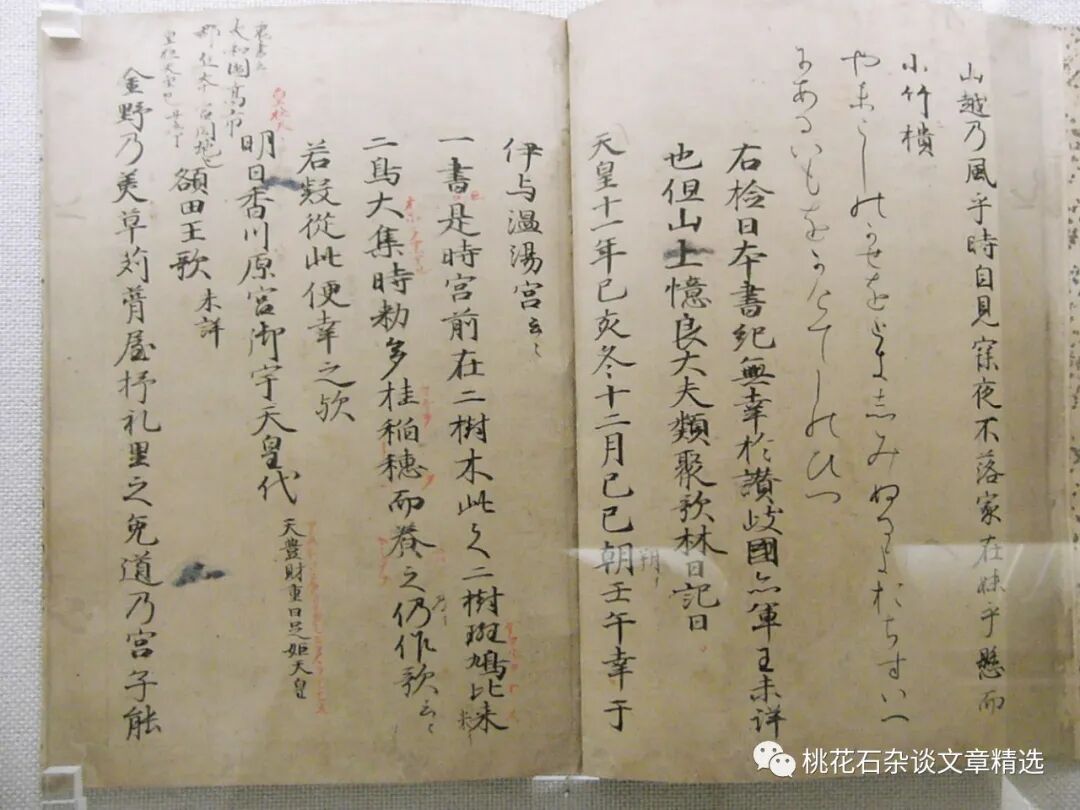 山越乃風乎時自見寐夜不落家在妹乎懸而
小竹樻
やまこしのかせをときしみぬるよおちすいへ
にあるいもをかけてしのひつ
右檢日本書紀無幸於讚岐國亦軍王未詳
也但山上憶良大夫類聚歌林曰記曰
天皇十一年己亥冬十二月己巳朔壬午幸于
伊与温湯宮云々
一書是時宮前在二樹木此之二樹斑鳩比米
二鳥大集時勅多挂稲穂而養之仍作歌云々
若疑從此便幸之歟
明日香川原宮御宇天皇代 天豊財重日足姫天皇
額田王歌 未詳
大和國高市
金野乃美草苅葺屋杼礼里之兎道乃宮子能
桃花石杂谈文章精选